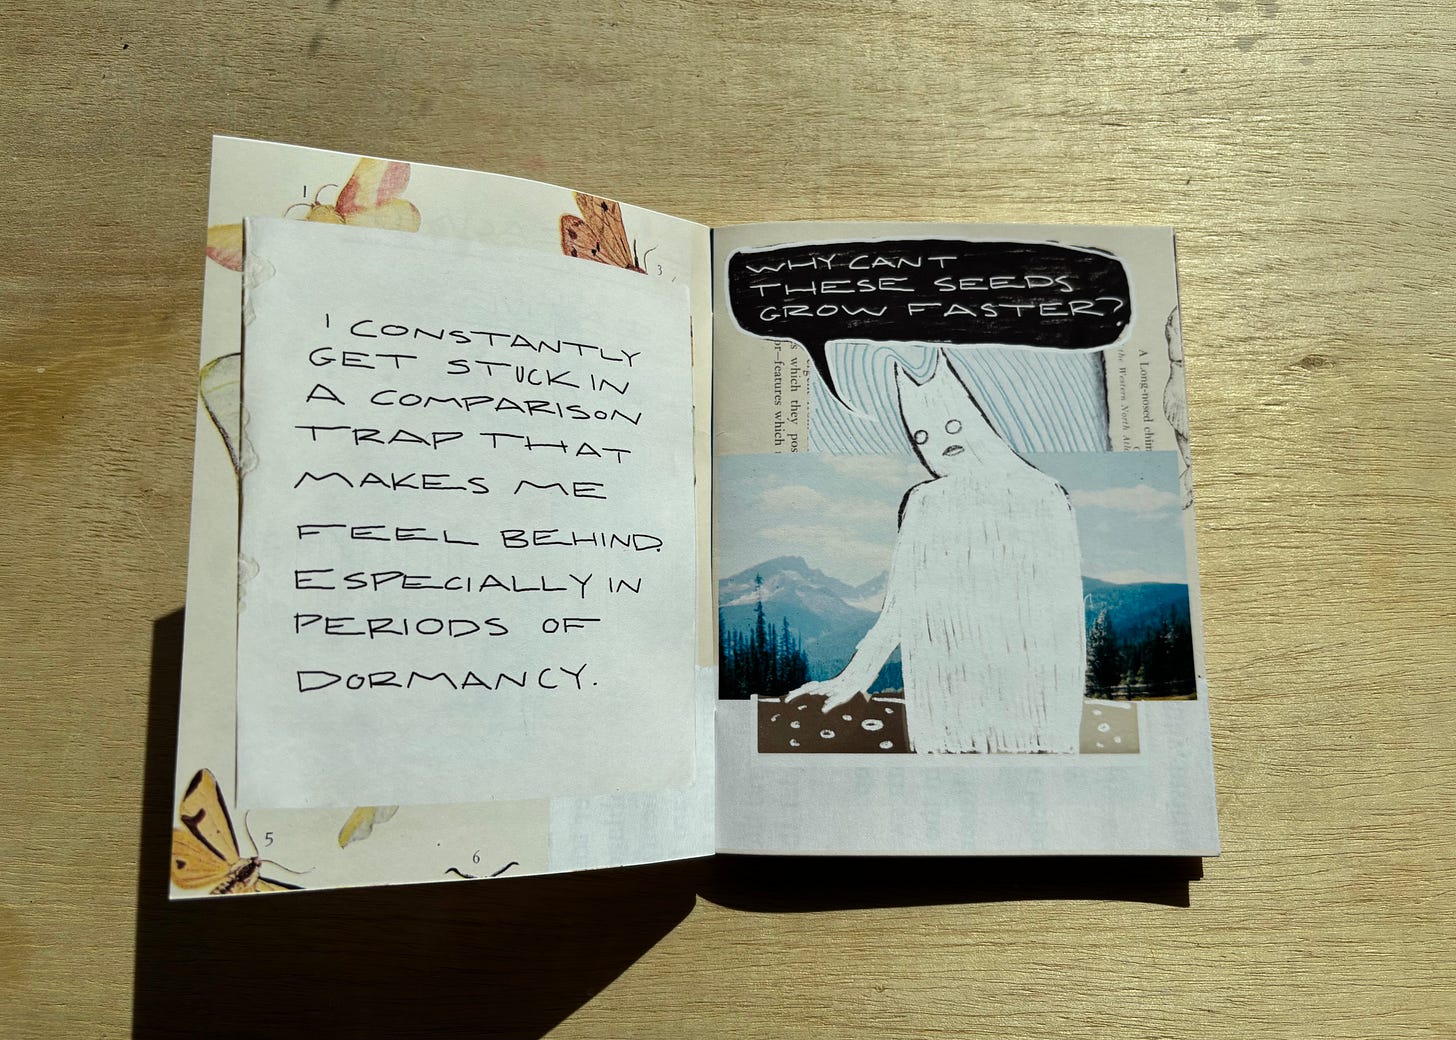 1
3
I CONSTANTLY
GET STUCK IN
A COMPARISON
TRAP THAT
MAKES ME
FEEL BEHIND.
ESPECIALLY IN
PERIODS OF
DORMANCY.
5
6
WHY CANT
THESE SEEDS
GROW FASTER?
s which they pos
or—features which
A Long-nosed chim
the Western North Atl